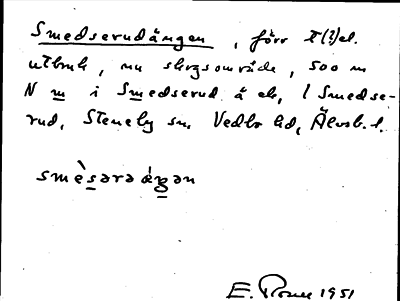 Smedserudängen, förr t(?)el.
utbruk, nu skogsområde, 500 m
N m i Smedserud å ek, l Smedse-
rud, Steneby sn. Vedbo hd, Älvsb. l.
smèsərə ǽŋən
E. 1951